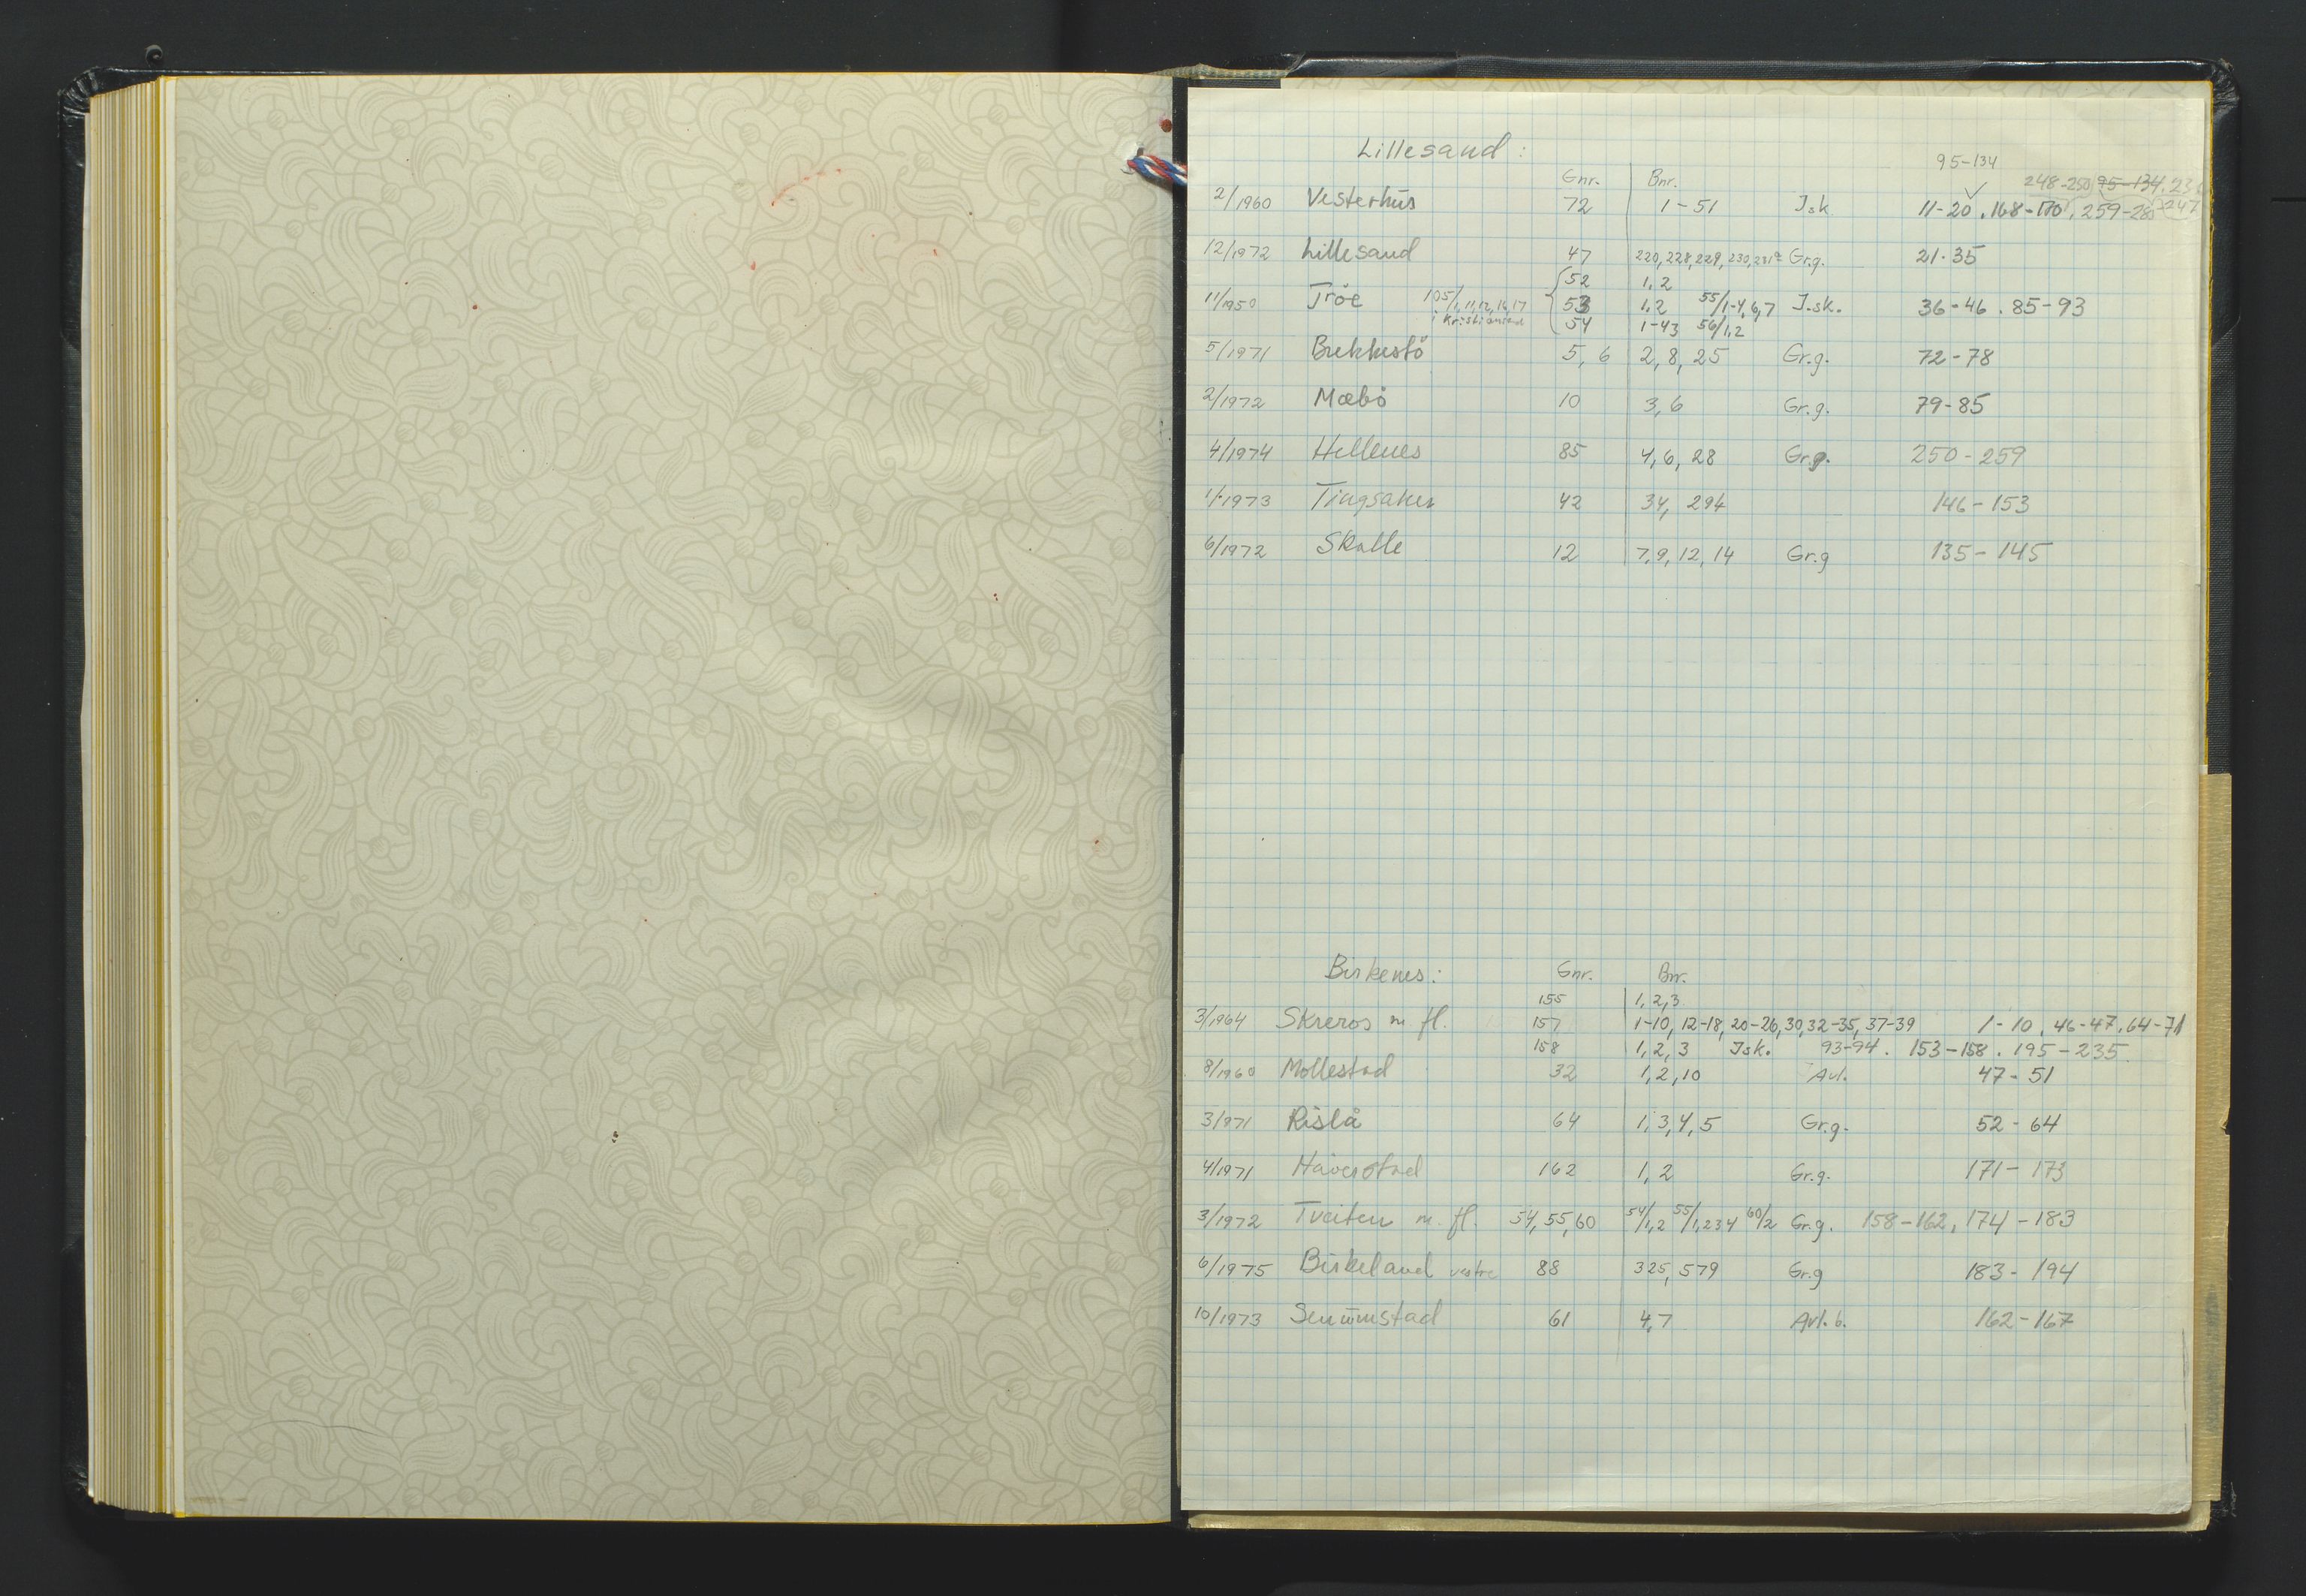 Lillesand :
95-134
Gnr. Bnr. 248-250, 95-134, 23
2/1960 Vesterhus 72 1-51 J.sk 11-20, 168-170, 259-28 -247
12/1972 Lillesand 47 220, 228, 229, 230, 231 Gr.g. 21-35
52 1,2
11/1950 Tröe 105/1,11,12,16,17 53 1,2 55/1-4,6,7 J.sk. 36-46. 85-93
i Kristiansand 54 1-43 56/1,2
5/1971 Brekkestö 5, 6 2, 8, 25 Gr.g. 72-78
2/1972 Mæbö 10 3, 6 Gr.g. 79-85
4/1974 Hellenes 85 4, 6, 28 Gr.g. 250-259
1/1973 Tingsaker 42 34, 294 146-153
6/1972 Skalle 12 7, 9, 12, 14 Gr.g 135-145
Birkenes : Gnr. Bnr.
155 1,2,3
3/1964 Skreros m fl. 157 1-10, 12-18, 20-26, 30, 32-35, 37-39 1-10, 46-47, 64-71
158 1, 2, 3 Jsk. 93-94. 153-158. 195-235.
8/1960 Mollestad 32 1, 2, 10 Avl. 47-51
3/1971 Rislå 64 1, 3, 4, 5 Gr.g. 52-64
4/1971 Håverstad 162 1, 2 Gr.g. 171-173
3/1972 Tveiten m. fl. 54, 55, 60 54/1,2 55/1,2 3 4 60/2 Gr.g. 158-162, 174-183
6/1975 Birkeland vestre 88 325, 579 Gr.g 183-194
10/1973 Senumstad 61 4,7 Avl. b. 162-167